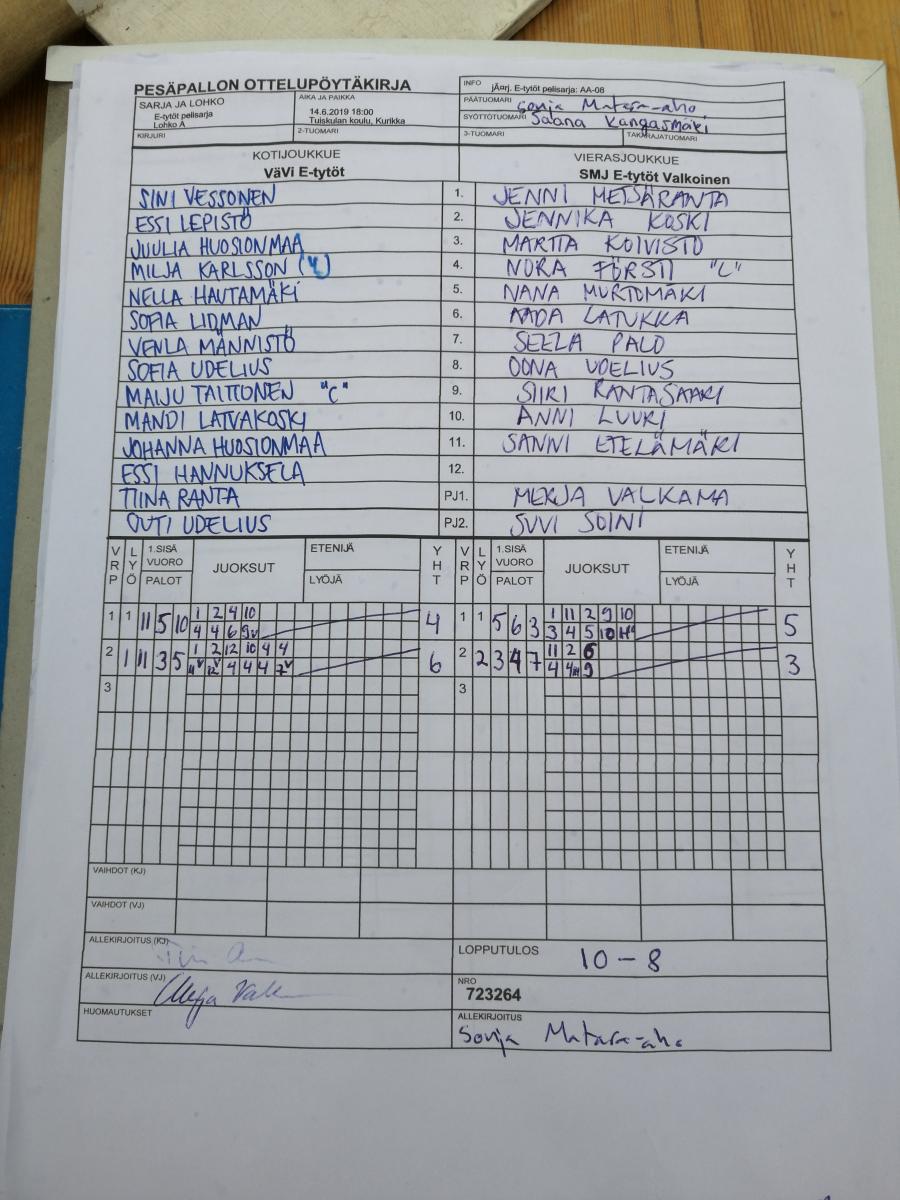 PESÄPALLON OTTELUPÖYTÄKIRJA
INFO jÄarj. E-tytöt pelisarja: AA-08
SARJA JA LOHKO
E-tytöt pelisarja
Lohko A
AIKA JA PAIKKA
14.6.2019 18:00
Tuiskulan koulu, Kurikka
PÄÄTUOMARI Sonja Matara-aho
SYÖTTÖTUOMARI Saana Kangasmäki
KIRJURI 2-TUOMARI 3-TUOMARI TAKARAJATUOMARI
KOTIJOUKKUE VIERASJOUKKUE
VäVi E-tytöt SMJ E-tytöt Valkoinen
SINI VESSONEN 1. JENNI METSÄRANTA
ESSI LEPISTÖ 2. JENNIKA KOSKI
JUULIA HUOSIONMAA 3. MARTTA KOIVISTO
MILJA KARLSSON 4. NORA FÖRSTI "C"
NELLA HAUTAMÄKI 5. NANA MURTOMÄKI
SOFIA LIDMAN 6. AADA LATUKKA
VENLA MÄNNISTÖ 7. SEELA PALO
SOFIA UDELIUS 8. OONA UDELIUS
MAIJU TAITTONEN "C" 9. SIIRI RANTASAARI
MANDI LATVAKOSKI 10. ANNI LUUKI
JOHANNA HUOSIONMAA 11. SANNI ETELÄMÄKI
ESSI HANNUKSELA 12.
TIINA RANTA PJ1. MERJA VALKAMA
OUTI UDELIUS PJ2. SUVI SOINI
VRP LYÖ 1.SISÄ VUORO PALOT JUOKSUT ETENIJÄ LYÖJÄ YHT VRP LYÖ 1.SISÄ VUORO PALOT JUOKSUT ETENIJÄ LYÖJÄ YHT
1 1 11 5 10 1 2 4 10 4 1 1 5 6 3 1 11 2 9 10 5
4 4 6 9v 3 4 5 10
2 1 11 3 5 1 2 12 10 4 4 6 2 2 3 4 7 11 2 6 3
12v 4 4 4 7v 4 4 9
3 3
VAIHDOT (KJ)
VAIHDOT (VJ)
ALLEKIRJOITUS (KJ) LOPPUTULOS 10-8
ALLEKIRJOITUS (VJ) Merja NRO 723264
HUOMAUTUKSET ALLEKIRJOITUS Sonja Matara-aho